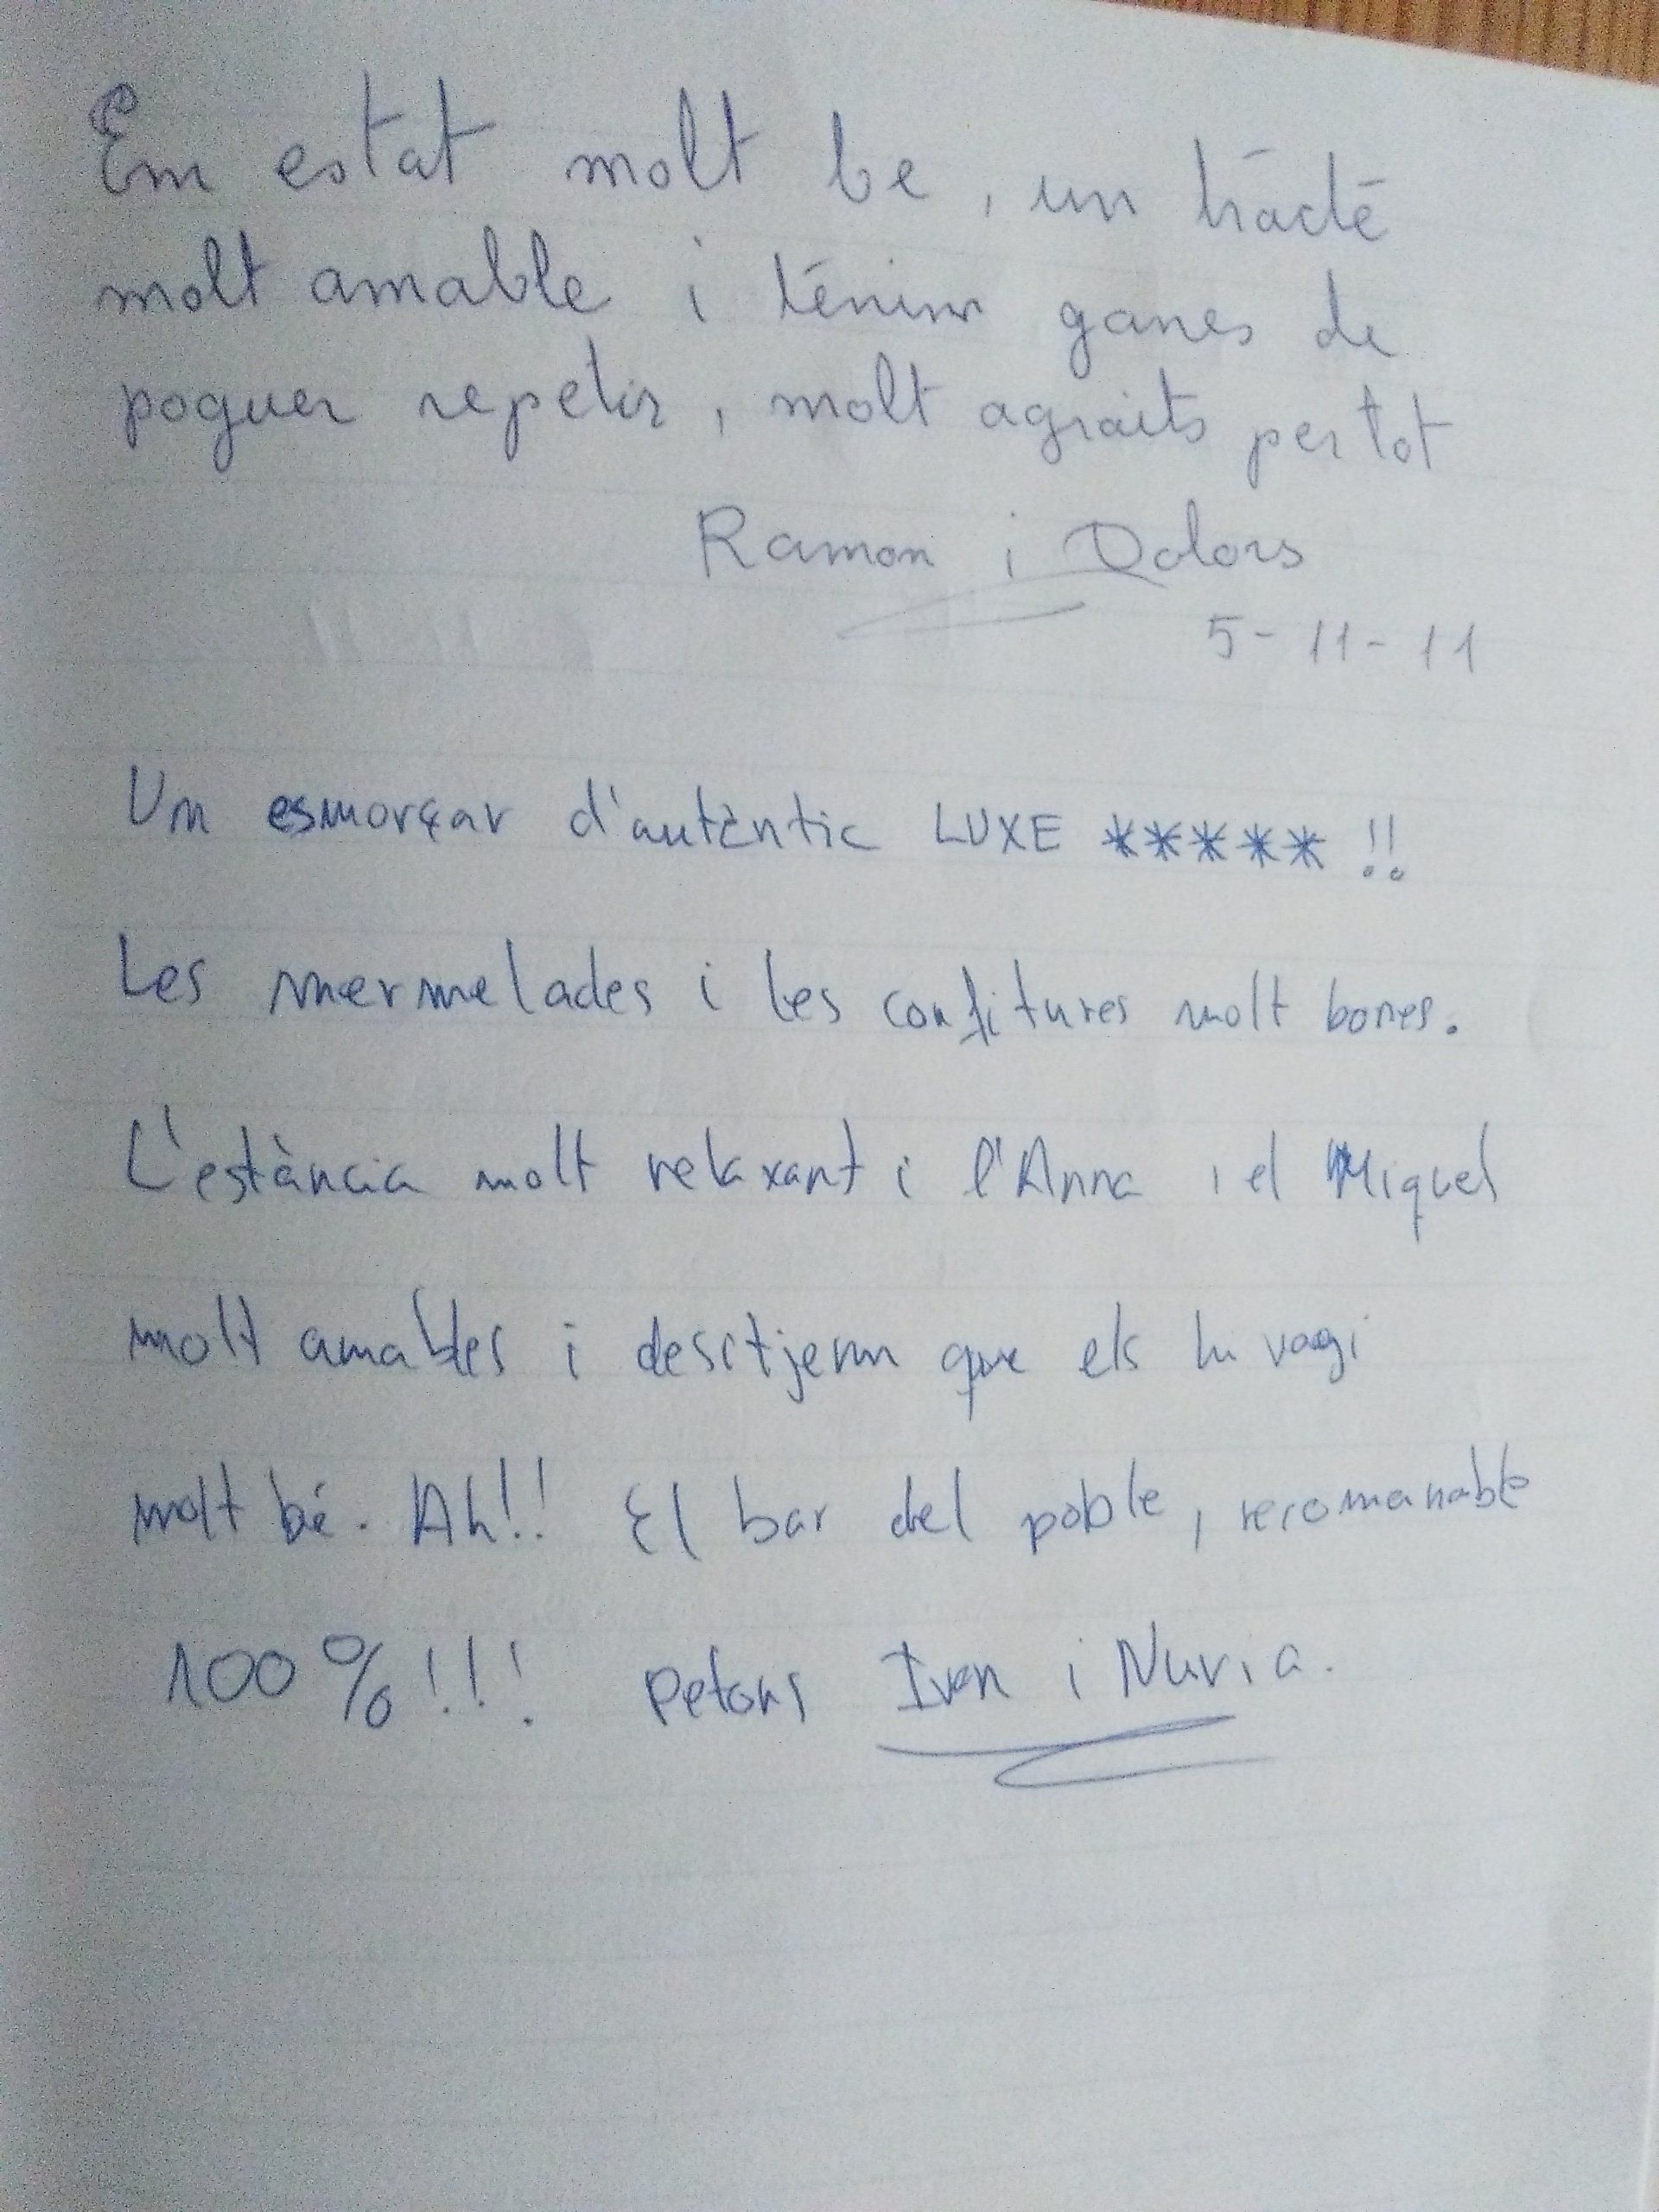 Em estat molt be, un tracte
molt amable i tenim ganes de
poguer repetir, molt agraits per tot
Ramon i Dolors
5-11-11
Un esmorçar d'autèntic LUXE *****!!
Les mermelades i les confitures molt bones.
L'estància molt relaxant i l'Anna i el Miquel
molt amables i desitjem que els hi vagi
molt bé. Ah!! El bar del poble, recomanable
100%!!! Petons Ivan i Nuria.